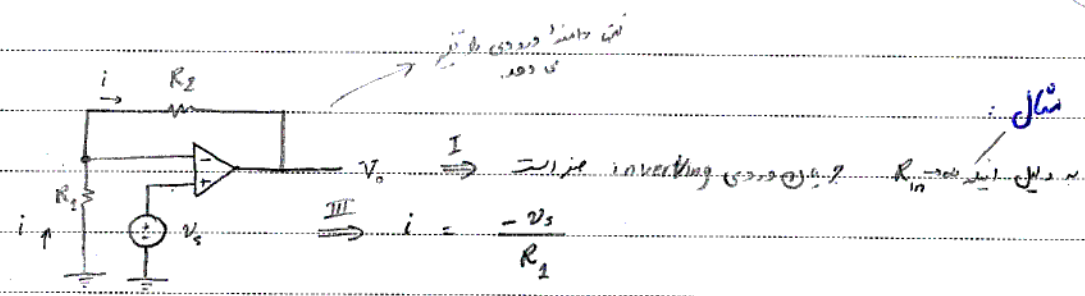 فقط دامنهٔ ورودی را تغییر
می دهد.
مثال :
i R2
به دلیل اینکه Rin→∞ جریان ورودی inverting صفر است I ⟹ Vo
R1 - +
i vs III ⟹ i = -vs / R1